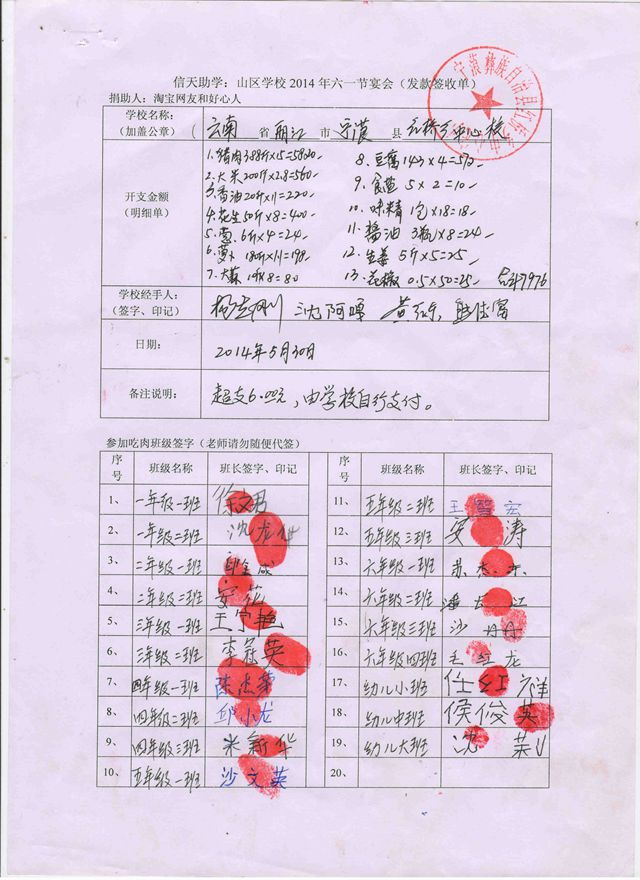 信天助学：山区学校2014年六一节宴会（发款签收单）
捐助人：淘宝网友和好心人
学校名称：
（加盖公章）（云南省丽江市宁蒗县 中心校
宁蒗彝族自治县
开支金额
（明细单）
1.猪肉388斤×15=5820
2.大米200斤×2.8=560
3.香油20斤×11=220
4.花生50斤×8=400
5.葱.6斤×4=24
6.萝卜180斤×11=198
7.大蒜10斤×8=80
8.豆腐143×4=572
9.食盐5×2=10
10.味精1包×18=18
11.酱油3瓶×8=24
12.生姜5斤×5=25
13.花椒0.5×50=25 合计7976
学校经手人：
（签字、印记）
沈阿
日期：
2014年5月30日
备注说明：
超支6.00元，由学校自行支付。
参加吃肉班级签字（老师请勿随便代签）
序号 班级名称 班长签字、印记 序号 班级名称 班长签字、印记
1、 一年级一班 徐文君
2、 一年级二班 沈龙
3、 二年级一班
4、 二年级二班 安花
5、 三年级一班 王学艳
6、 三年级二班 李冠英
7、 四年级一班 陈杰
8、 四年级二班 邱小龙
9、 四年级三班 米新华
10、 五年级一班 沙文英
11、 五年级二班 王智宏
12、 五年级三班 安涛
13、 六年级一班 苏杰
14、 六年级二班 江
15、 六年级三班 沙丹丹
16、 六年级四班 毛红龙
17、 幼儿小班 任红祥
18、 幼儿中班 侯俊英
19、 幼儿大班 沈
20、